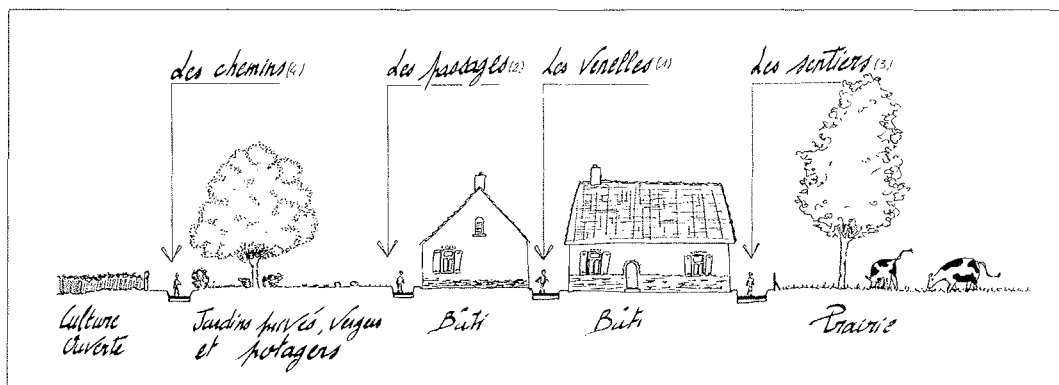 Les chemins (4)
Les passages (2)
Les venelles (1)
Les sentiers (3)
Culture
Ouverte
Jardins privés, vergers
et potagers
Bâti
Bâti
Prairie